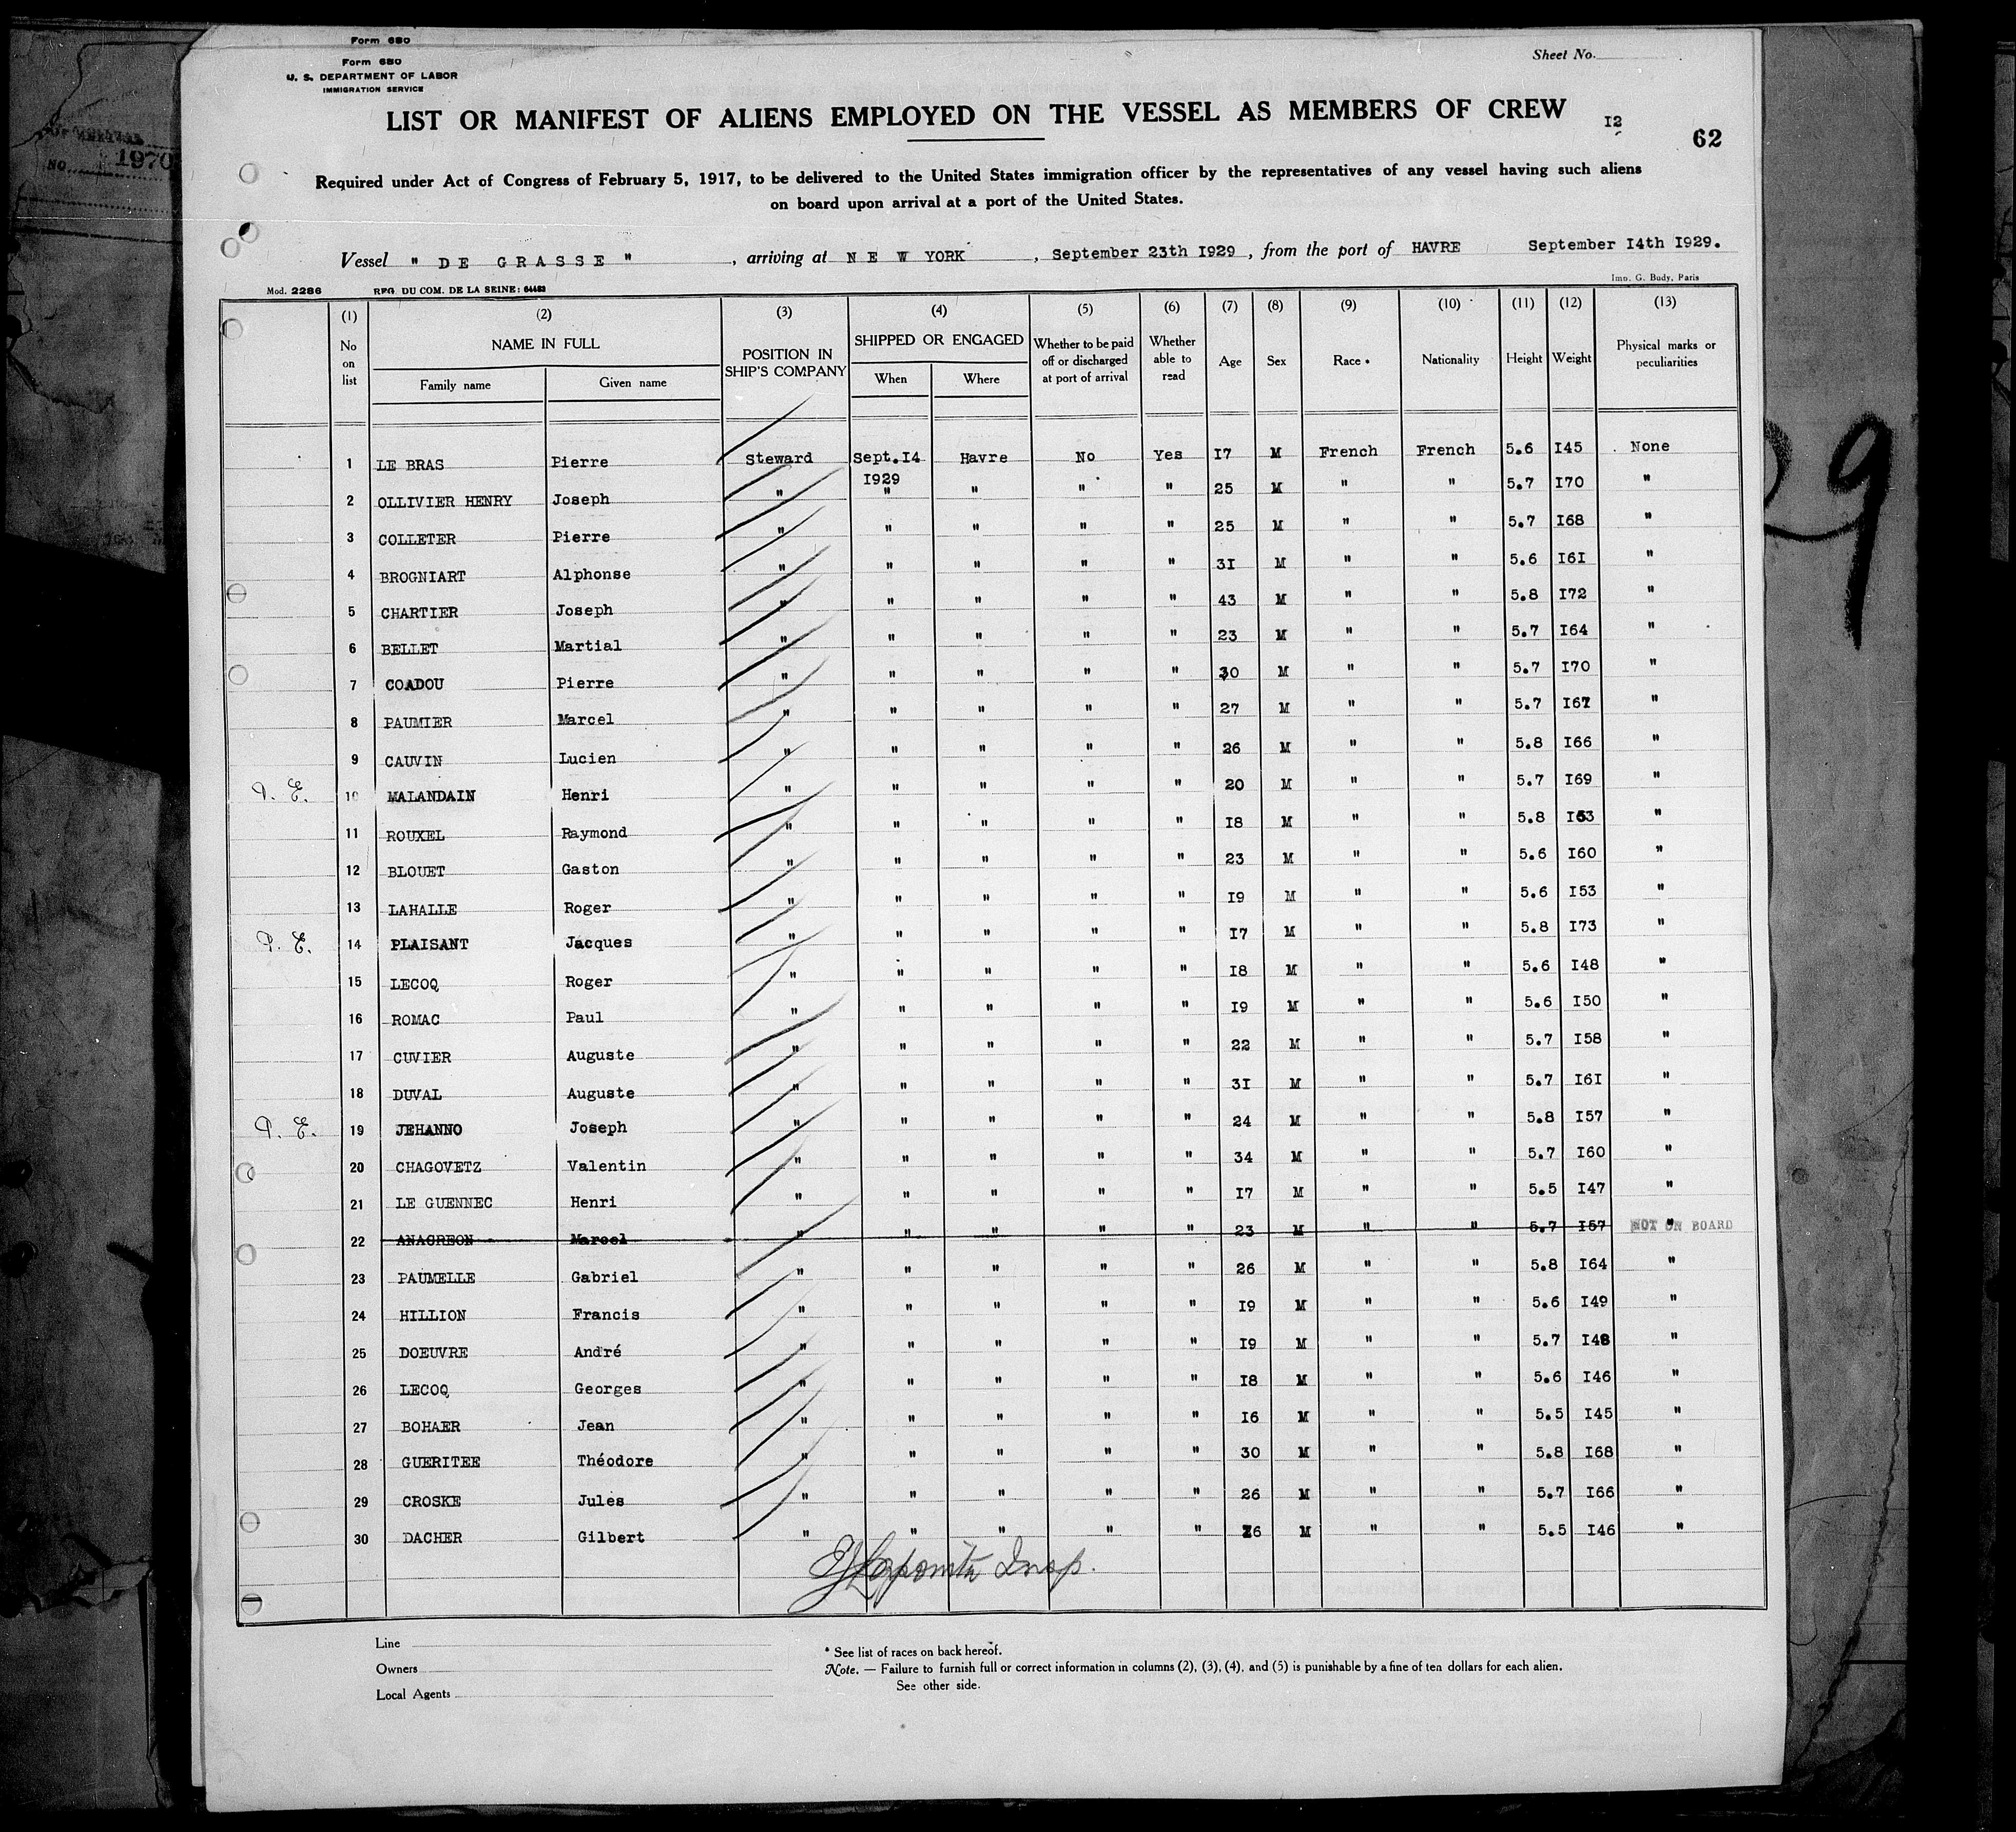 Form 680
Form 680
U. S. DEPARTMENT OF LABOR
IMMIGRATION SERVICE
Sheet No.
LIST OR MANIFEST OF ALIENS EMPLOYED ON THE VESSEL AS MEMBERS OF CREW
I2
62
NO 1970
Required under Act of Congress of February 5, 1917, to be delivered to the United States immigration officer by the representatives of any vessel having such aliens
on board upon arrival at a port of the United States.
Vessel " DE GRASSE ", arriving at NEW YORK, September 23th I929, from the port of HAVRE September I4th I929.
Mod. 2286 REG. DU COM. DE LA SEINE: 64483 Imp. G. Budy, Paris
(1) (2) (3) (4) (5) (6) (7) (8) (9) (10) (11) (12) (13)
No on list NAME IN FULL Family name Given name POSITION IN SHIP'S COMPANY SHIPPED OR ENGAGED When Where Whether to be paid off or discharged at port of arrival Whether able to read Age Sex Race * Nationality Height Weight Physical marks or peculiarities
1 LE BRAS Pierre Steward Sept.I4 I929 Havre No Yes I7 M French French 5.6 I45 None
2 OLLIVIER HENRY Joseph " " " " " 25 M " " 5.7 I70 "
3 COLLETER Pierre " " " " " 25 M " " 5.7 I68 "
4 BROGNIART Alphonse " " " " " 3I M " " 5.6 I6I "
5 CHARTIER Joseph " " " " " 43 M " " 5.8 I72 "
6 BELLET Martial " " " " " 23 M " " 5.7 I64 "
7 COADOU Pierre " " " " " 30 M " " 5.7 I70 "
8 PAUMIER Marcel " " " " " 27 M " " 5.7 I67 "
9 CAUVIN Lucien " " " " " 26 M " " 5.8 I66 "
P. E. 10 MALANDAIN Henri " " " " " 20 M " " 5.7 I69 "
11 ROUXEL Raymond " " " " " I8 M " " 5.8 I63 "
12 BLOUET Gaston " " " " " 23 M " " 5.6 I60 "
13 LAHALLE Roger " " " " " I9 M " " 5.6 I53 "
P. E. 14 PLAISANT Jacques " " " " " I7 M " " 5.8 I73 "
15 LECOQ Roger " " " " " I8 M " " 5.6 I48 "
16 ROMAC Paul " " " " " I9 M " " 5.6 I50 "
17 CUVIER Auguste " " " " " 22 M " " 5.7 I58 "
18 DUVAL Auguste " " " " " 3I M " " 5.7 I6I "
P. E. 19 JEHANNO Joseph " " " " " 24 M " " 5.8 I57 "
20 CHAGOVETZ Valentin " " " " " 34 M " " 5.7 I60 "
21 LE GUENNEC Henri " " " " " I7 M " " 5.5 I47 "
22 ANACREON Marcel " " " " " 23 M " " 5.7 I57 " NOT ON BOARD
23 PAUMELLE Gabriel " " " " " 26 M " " 5.8 I64 "
24 HILLION Francis " " " " " I9 M " " 5.6 I49 "
25 DOEUVRE André " " " " " I9 M " " 5.7 I48 "
26 LECOQ Georges " " " " " I8 M " " 5.6 I46 "
27 BOHAER Jean " " " " " I6 M " " 5.5 I45 "
28 GUERITEE Théodore " " " " " 30 M " " 5.8 I68 "
29 CROSKE Jules " " " " " 26 M " " 5.7 I66 "
30 DACHER Gilbert " " " " " 26 M " " 5.5 I46 "
Insp.
Line
Owners
Local Agents
* See list of races on back hereof.
Note. — Failure to furnish full or correct information in columns (2), (3), (4), and (5) is punishable by a fine of ten dollars for each alien.
See other side.
9